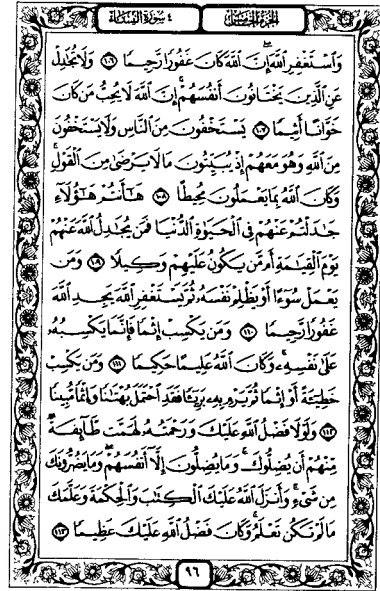 الجزء الخامس ٤ سورة النساء
وَٱسْتَغْفِرِ ٱللَّهَ إِنَّ ٱللَّهَ كَانَ غَفُورًا رَّحِيمًا ١٠٦ وَلَا تُجَٰدِلْ
عَنِ ٱلَّذِينَ يَخْتَانُونَ أَنفُسَهُمْ إِنَّ ٱللَّهَ لَا يُحِبُّ مَن كَانَ
خَوَّانًا أَثِيمًا ١٠٧ يَسْتَخْفُونَ مِنَ ٱلنَّاسِ وَلَا يَسْتَخْفُونَ
مِنَ ٱللَّهِ وَهُوَ مَعَهُمْ إِذْ يُبَيِّتُونَ مَا لَا يَرْضَىٰ مِنَ ٱلْقَوْلِ
وَكَانَ ٱللَّهُ بِمَا يَعْمَلُونَ مُحِيطًا ١٠٨ هَٰٓأَنتُمْ هَٰٓؤُلَآءِ
جَٰدَلْتُمْ عَنْهُمْ فِى ٱلْحَيَوٰةِ ٱلدُّنْيَا فَمَن يُجَٰدِلُ ٱللَّهَ عَنْهُمْ
يَوْمَ ٱلْقِيَٰمَةِ أَم مَّن يَكُونُ عَلَيْهِمْ وَكِيلًا ١٠٩ وَمَن
يَعْمَلْ سُوٓءًا أَوْ يَظْلِمْ نَفْسَهُۥ ثُمَّ يَسْتَغْفِرِ ٱللَّهَ يَجِدِ ٱللَّهَ
غَفُورًا رَّحِيمًا ١١٠ وَمَن يَكْسِبْ إِثْمًا فَإِنَّمَا يَكْسِبُهُۥ
عَلَىٰ نَفْسِهِۦ وَكَانَ ٱللَّهُ عَلِيمًا حَكِيمًا ١١١ وَمَن يَكْسِبْ
خَطِيٓـَٔةً أَوْ إِثْمًا ثُمَّ يَرْمِ بِهِۦ بَرِيٓـًٔا فَقَدِ ٱحْتَمَلَ بُهْتَٰنًا وَإِثْمًا مُّبِينًا
١١٢ وَلَوْلَا فَضْلُ ٱللَّهِ عَلَيْكَ وَرَحْمَتُهُۥ لَهَمَّت طَّآئِفَةٌ
مِّنْهُمْ أَن يُضِلُّوكَ وَمَا يُضِلُّونَ إِلَّآ أَنفُسَهُمْ وَمَا يَضُرُّونَكَ
مِن شَىْءٍ وَأَنزَلَ ٱللَّهُ عَلَيْكَ ٱلْكِتَٰبَ وَٱلْحِكْمَةَ وَعَلَّمَكَ
مَا لَمْ تَكُن تَعْلَمُ وَكَانَ فَضْلُ ٱللَّهِ عَلَيْكَ عَظِيمًا ١١٣
٩٦